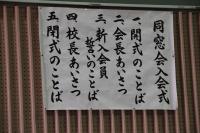 同窓会入会式
一、開式のことば
二、会長あいさつ
三、新入会員
誓いのことば
四、校長あいさつ
五、閉式のことば